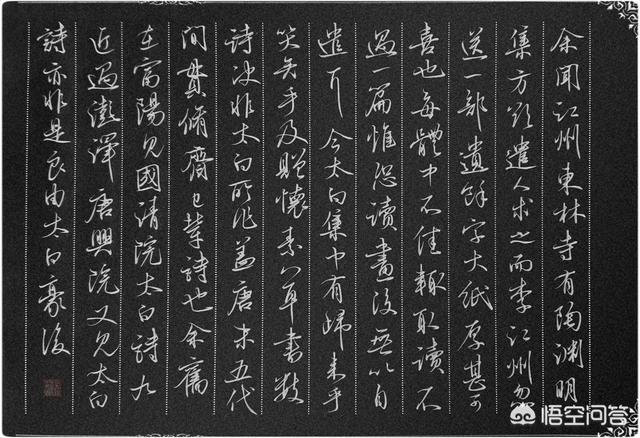 余聞江州東林寺有陶淵明
集方欲遣人求之而李江州忽
送一部遺餘字大紙厚甚可
喜也每體中不佳輒取讀不
過一篇惟恐讀盡後無以自
遣耳今太白集中有歸來乎
笑矣乎及贈懷素草書數
詩決非太白所作蓋唐末五代
間貫休齊己輩詩也余舊
在富陽見國清院太白詩凡
近過澎澤唐興院又見太白
詩亦非是良由太白豪俊
悟空问答